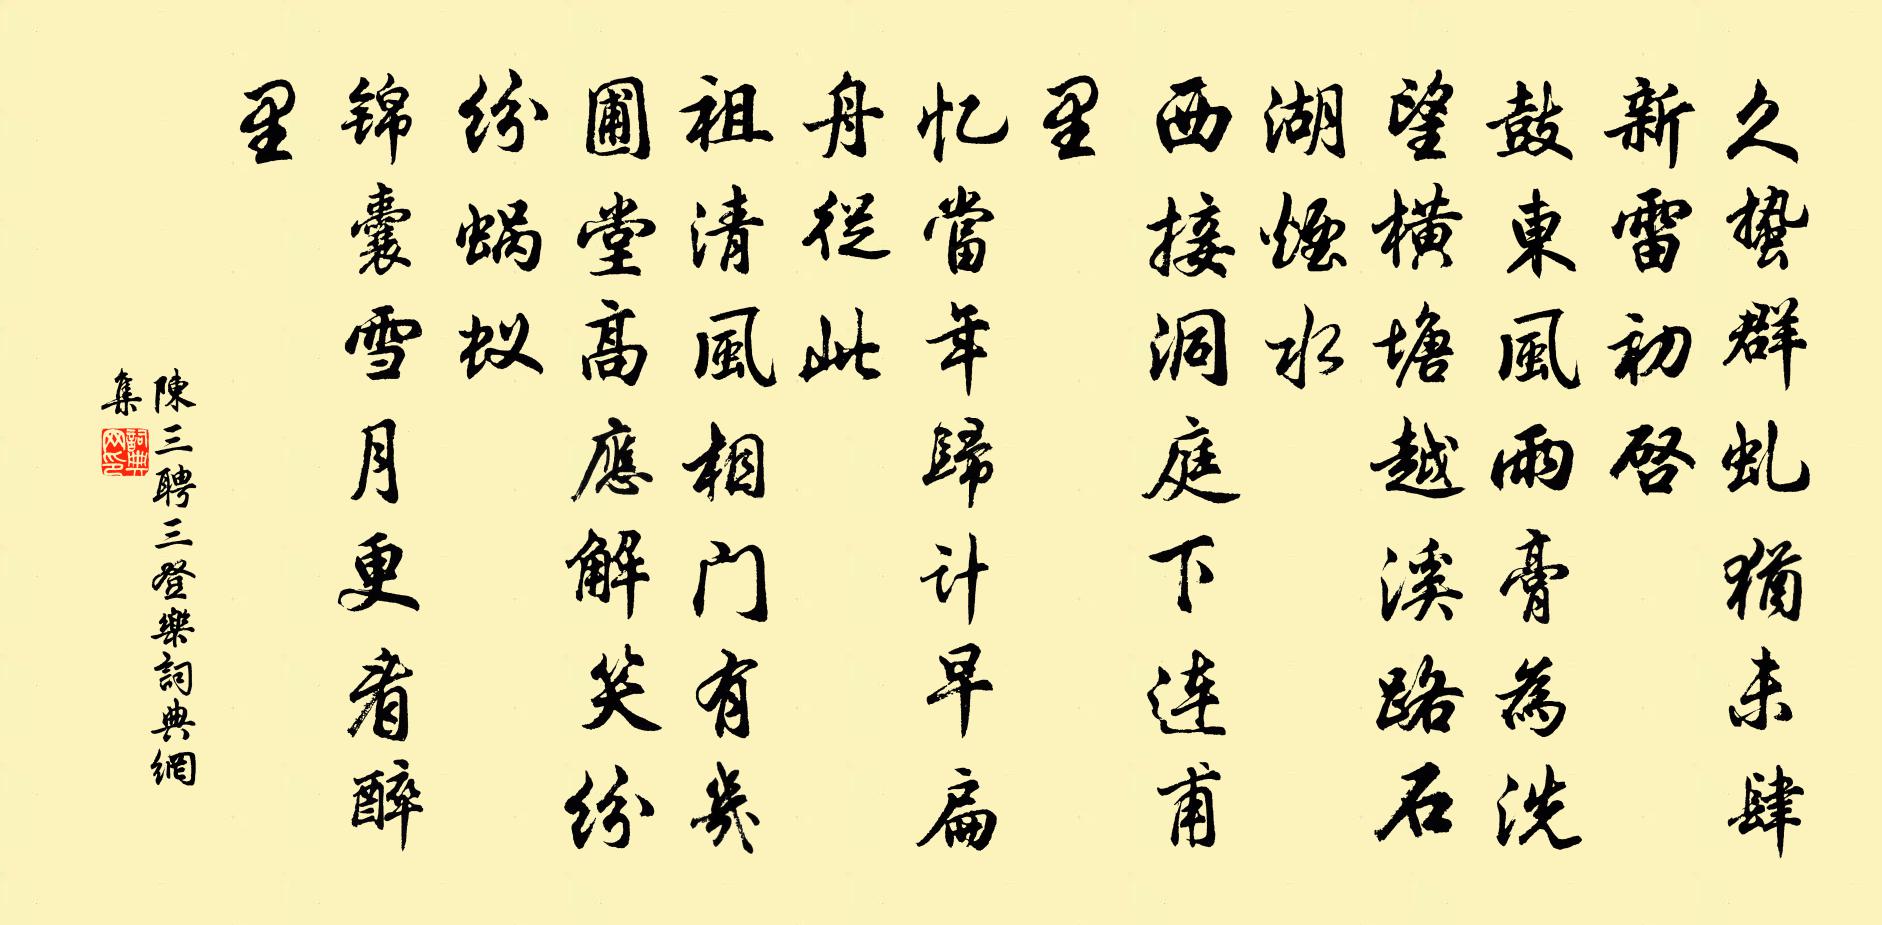 久蛰群虬猶未肆
新雷初啓
鼓東風雨膏為洗
望橫塘越溪路石
湖煙水
西接洞庭下連甫
里
忆當年歸计早扁
舟從此
祖清風相门有幾
圃堂高應解笑紛
紛蝸蚁
锦囊雪月更看醉
里
陳三聘三登樂詞典網
集
詞典网印